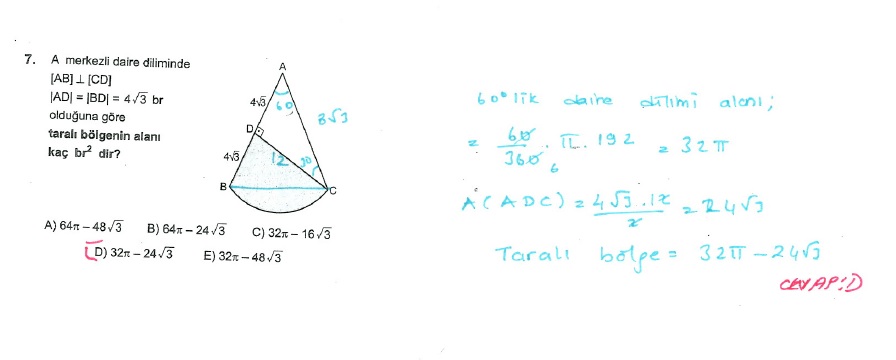 7. A merkezli daire diliminde
[AB] ⊥ [CD]
|AD| = |BD| = 4√3 br
olduğuna göre
taralı bölgenin alanı
kaç br² dir?
A
4√3
60
8√3
D
4√3
12
30
B
C
A) 64π – 48√3 B) 64π – 24√3 C) 32π – 16√3
D) 32π – 24√3 E) 32π – 48√3
60° lik daire dilimi alanı;
= 60/360 . π. 192 = 32π
6
A(ADC) = 4√3 . 12/2 = 24√3
Taralı bölge = 32π – 24√3
CEVAP: D